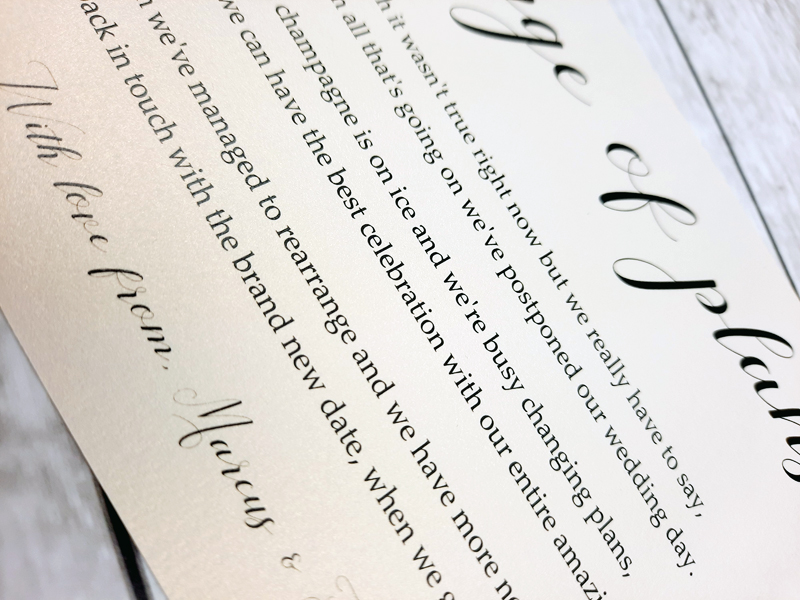 of plans
it wasn't true right now but we really have to say,
all that's going on we've postponed our wedding day.
champagne is on ice and we're busy changing plans,
we can have the best celebration with our entire
we've managed to rearrange and we have more
back in touch with the brand new date, when we
With love from,
Marcus &